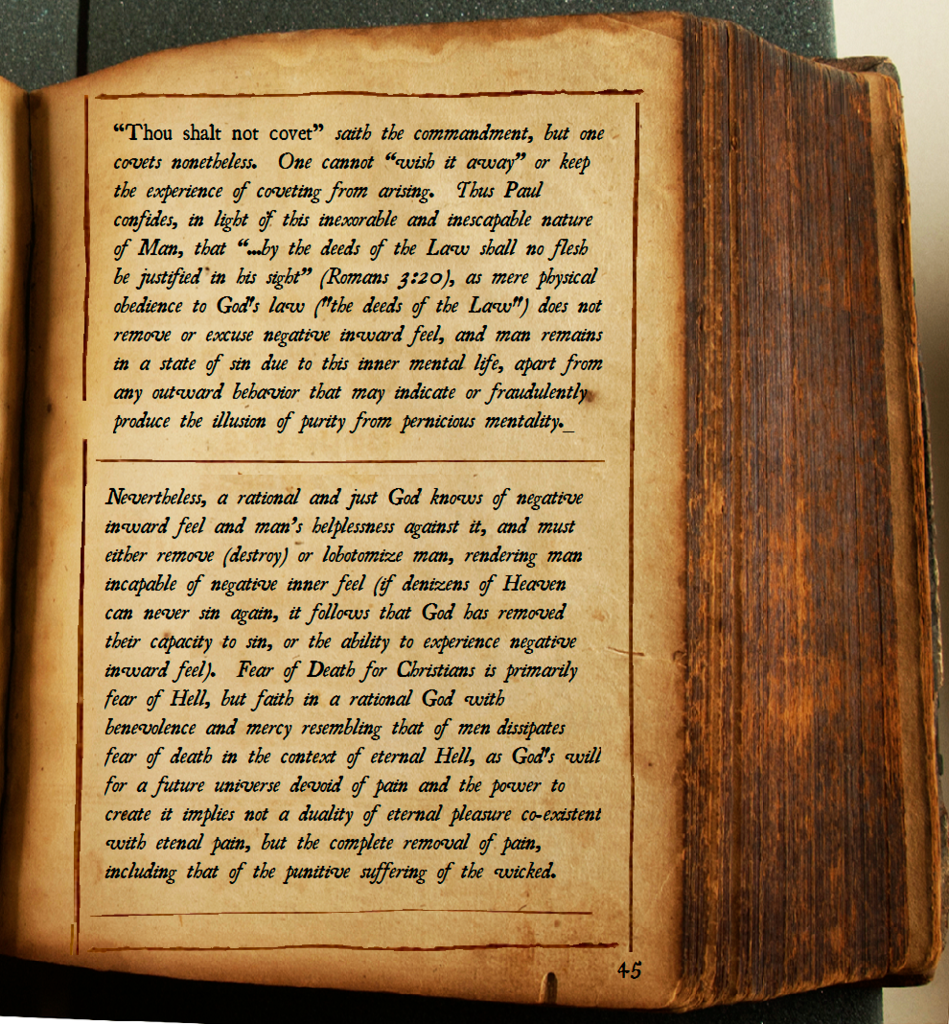 “Thou shalt not covet” saith the commandment, but one
covets nonetheless. One cannot “wish it away” or keep
the experience of coveting from arising. Thus Paul
confides, in light of this inexorable and inescapable nature
of Man, that “...by the deeds of the Law shall no flesh
be justified in his sight” (Romans 3:20), as mere physical
obedience to God's law ("the deeds of the Law") does not
remove or excuse negative inward feel, and man remains
in a state of sin due to this inner mental life, apart from
any outward behavior that may indicate or fraudulently
produce the illusion of purity from pernicious mentality._
Nevertheless, a rational and just God knows of negative
inward feel and man's helplessness against it, and must
either remove (destroy) or lobotomize man, rendering man
incapable of negative inner feel (if denizens of Heaven
can never sin again, it follows that God has removed
their capacity to sin, or the ability to experience negative
inward feel). Fear of Death for Christians is primarily
fear of Hell, but faith in a rational God with
benevolence and mercy resembling that of men dissipates
fear of death in the context of eternal Hell, as God's will
for a future universe devoid of pain and the power to
create it implies not a duality of eternal pleasure co-existent
with etenal pain, but the complete removal of pain,
including that of the punitive suffering of the wicked.
45